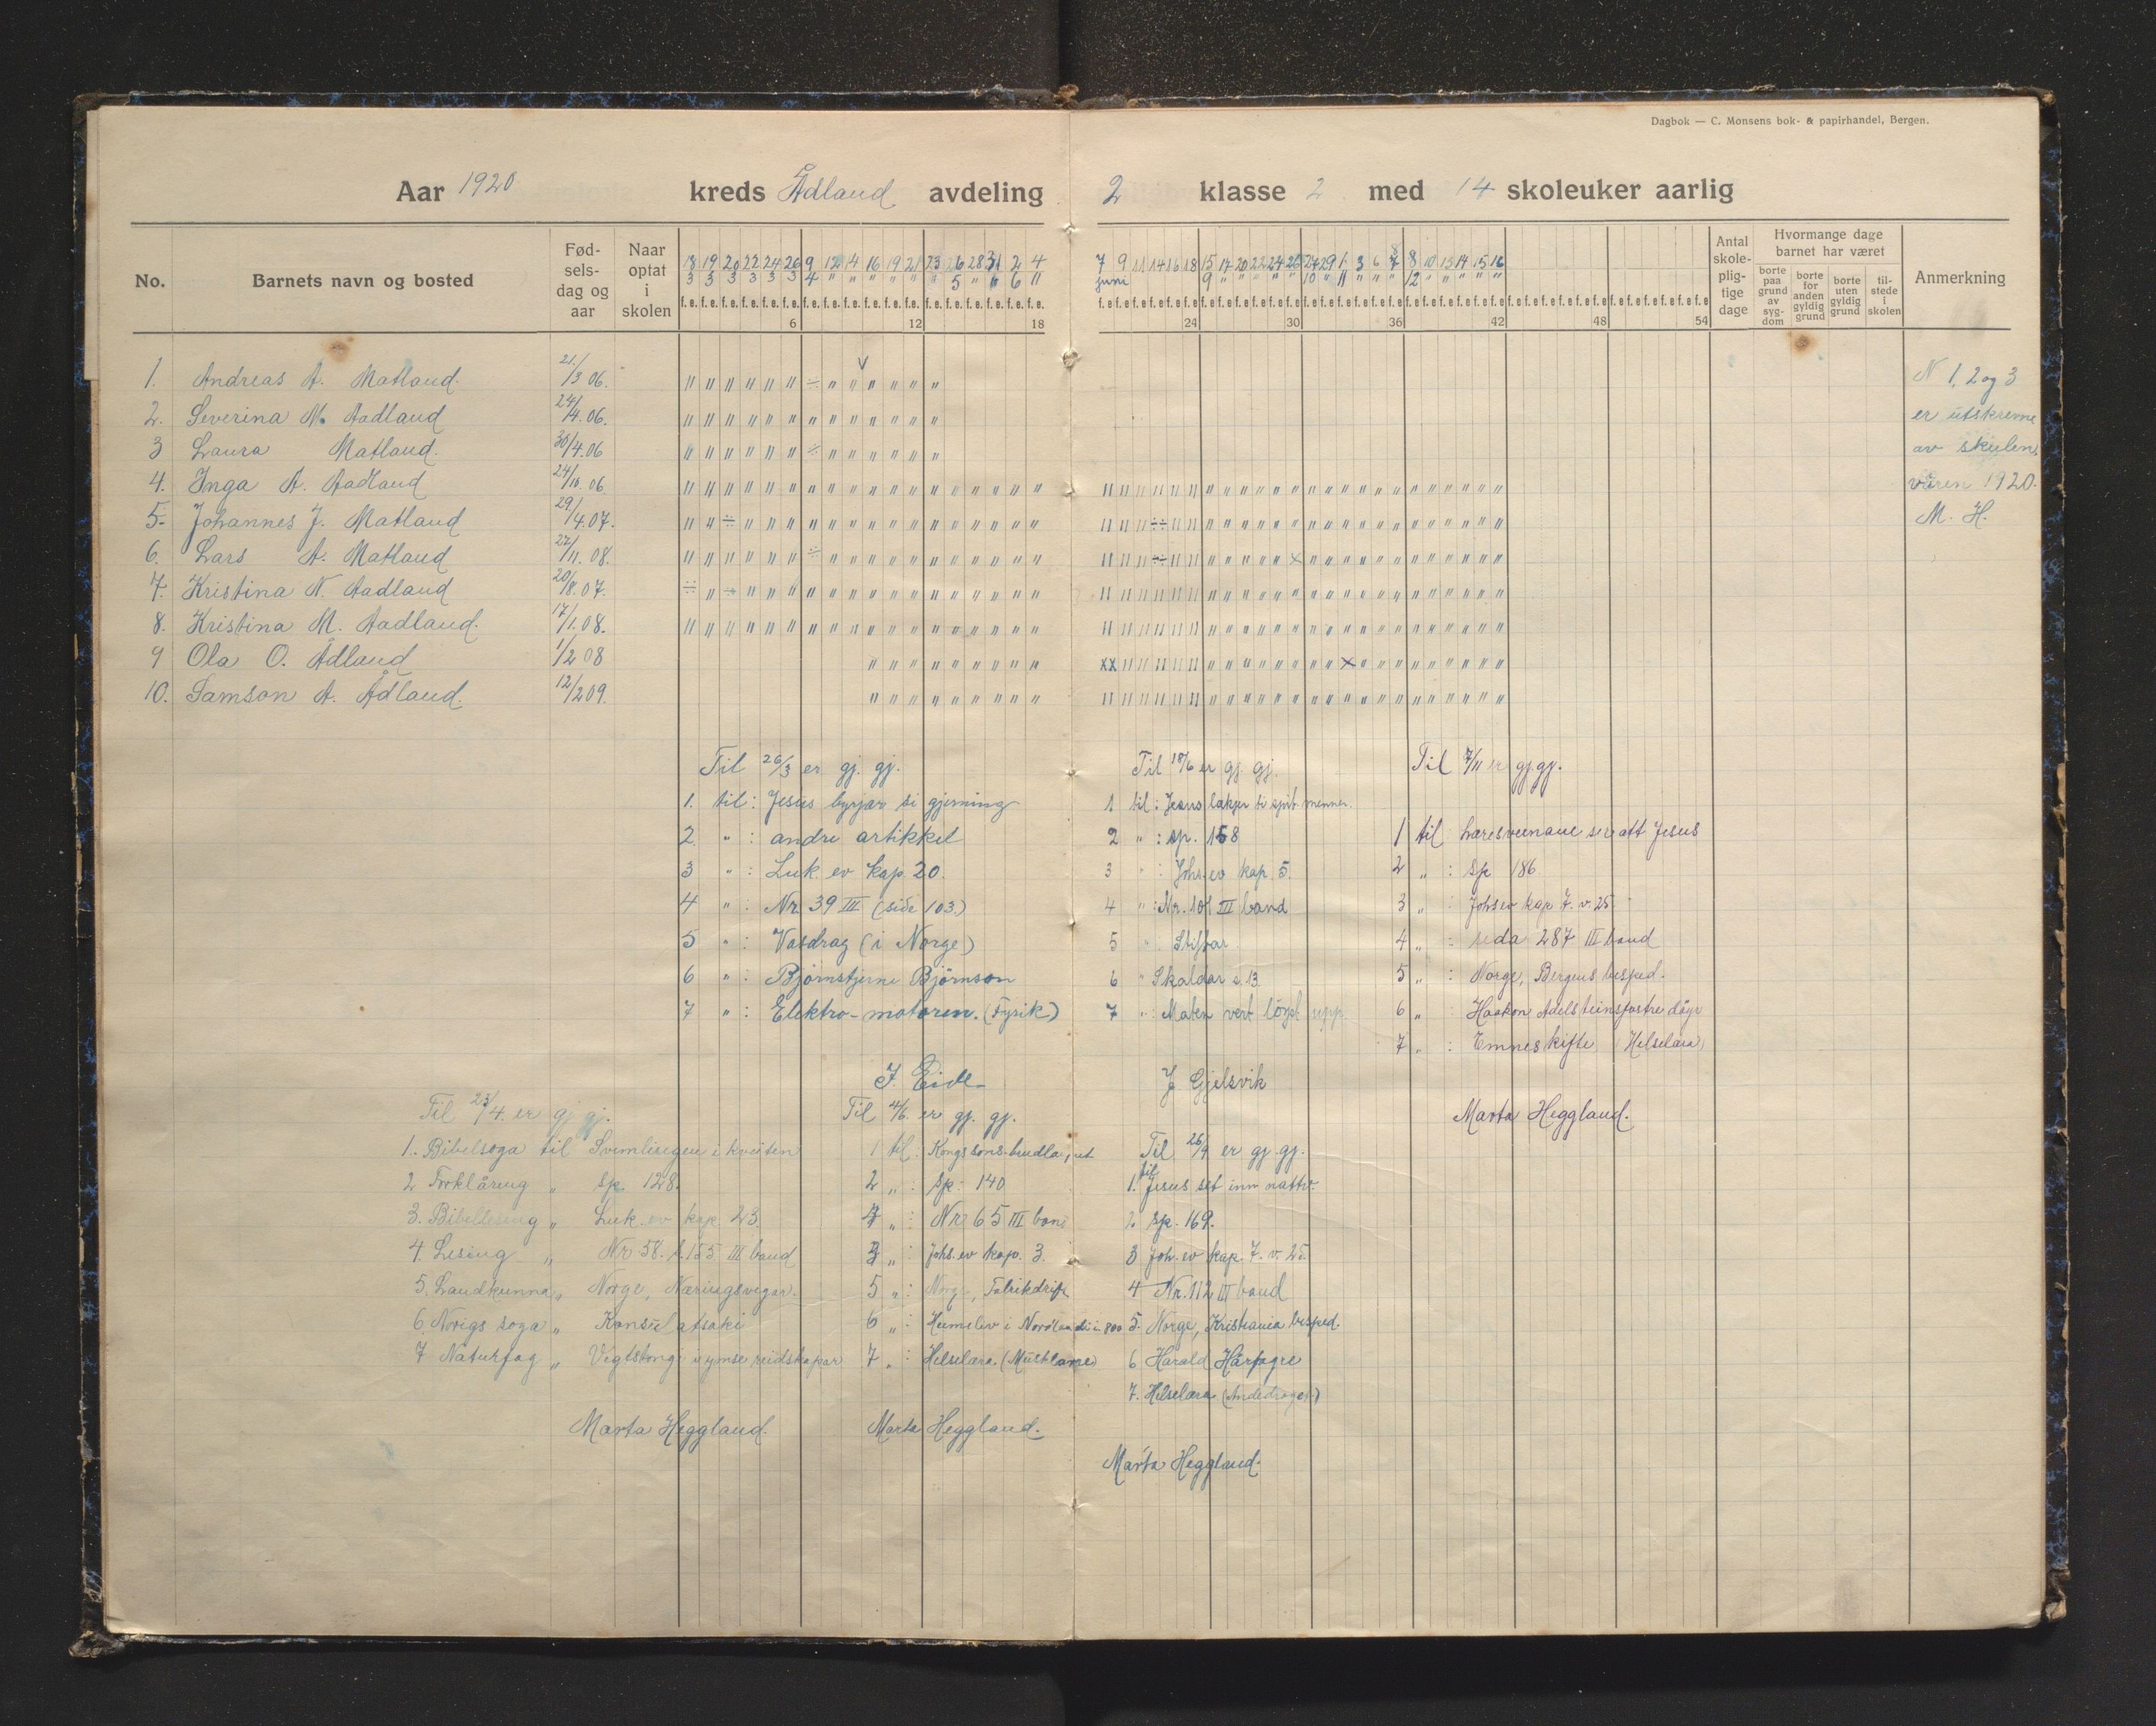 Dagbok — C. Monsens bok- & papirhandel, Bergen.
Aar 1920 kreds Ådland avdeling 2 klasse 2 med 14 skoleuker aarlig
No. Barnets navn og bosted Fødselsdag og aar Naar optat i skolen Antal skolepligtige dage Hvormange dage barnet har været Anmerkning
borte paa grund av sygdom borte for anden gyldig grund borte uten gyldig grund tilstede i skolen
18 19 20 22 24 26 9 12 14 16 19 21 23 26 28 31 2 4 7 9 11 14 16 18 15 17 20 22 24 26 27 29 1 3 6 7 8 10 13 14 15 16
3 3 3 3 3 3 4 " " " " " " 5 " " 6 " juni 9 " " " " " 10 " 11 " " " 12 " " " " "
6 12 18 24 30 36 42 48 54
1. Andreas A. Matland. 21/3 06. N 1, 2 og 3
2. Severina M. Aadland 24/4. 06. er utskrevne
3 Laura Matland. 30/4.06 av skulen
4. Inga A. Aadland 24/10. 06 våren 1920.
5. Johannes J. Matland 29/4.07. M. H.
6. Lars A. Matland 27/11. 08.
7. Kristina N. Aadland 20/8.07.
8. Kristina M. Aadland. 17/1.08.
9 Ola O. Ådland 1/2 08
10. Samson A. Ådland. 12/2 09.
Til 26/3 er gj. gj.
1. til: Jesus byrjar si gjerning
2. " : andre artikkel
3 " : Luk. ev kap 20.
4 " : Nr 39 III (side 103.)
5 " : Vasdrag (i Norge)
6 " : Bjørnstjerne Bjørnson
7 " : Elektro-motoren. (Fysik)
J. Eide
Til 18/6 er gj. gj.
1 til: Jesus lækjer ti spit. menner.
2 " : sp. 158
3 " : Johs. ev kap. 5.
4 " : Nr. 101 III band
5 "
6 " Skaldar s. 13
7 " : Maten vert løyst upp.
J Gjelsvik
Til 7/11 er gj.gj.
1 til Læresveinane ser att Jesus
2 " : Sp 186.
3 " : Johs ev kap 7. v. 25
4 " : sida 287 III band
5 " : Norge, Bergens bisped.
6 " Haakon Adelsteinsfostre døyr
7 " : Emneskifte (Helselæra)
Marta Heggland.
Til 23/4. er gj gj.
1. Bibelsoga til
2 Forklåring " Sp. 128.
3. Bibellesing " Luk. ev kap 23.
4 Lesing " Nr 58. s. 155 III band
5. Landkunna " Norge, Næringsvegar.
6. Norigs soga " Konsulatsaki
7 Naturfag " Vegtstong i ymse reidskapar
Marta Heggland.
Til 4/6. er gj. gj.
1 til : Kongssons-brudlaupet
2 " : Sp. 140
4 " : Nr 65 III band
3 " : Johs. ev kap. 3.
5 " : Norge, Fabrikdrift
6 " : Heimeliv i Nordlandi i 800
7 " : Helselæra. (Musklane)
Marta Heggland.
Til 26/9 er gj. gj.
1. til Jesus set inn nattv.
2. Sp. 169.
3 Joh. ev kap. 7. v. 25.
4 Nr. 112 III band
5. Norge, Kristiania bisped.
6 Harald Hårfagre
7. Helselæra (Andedraget)
Marta Heggland.